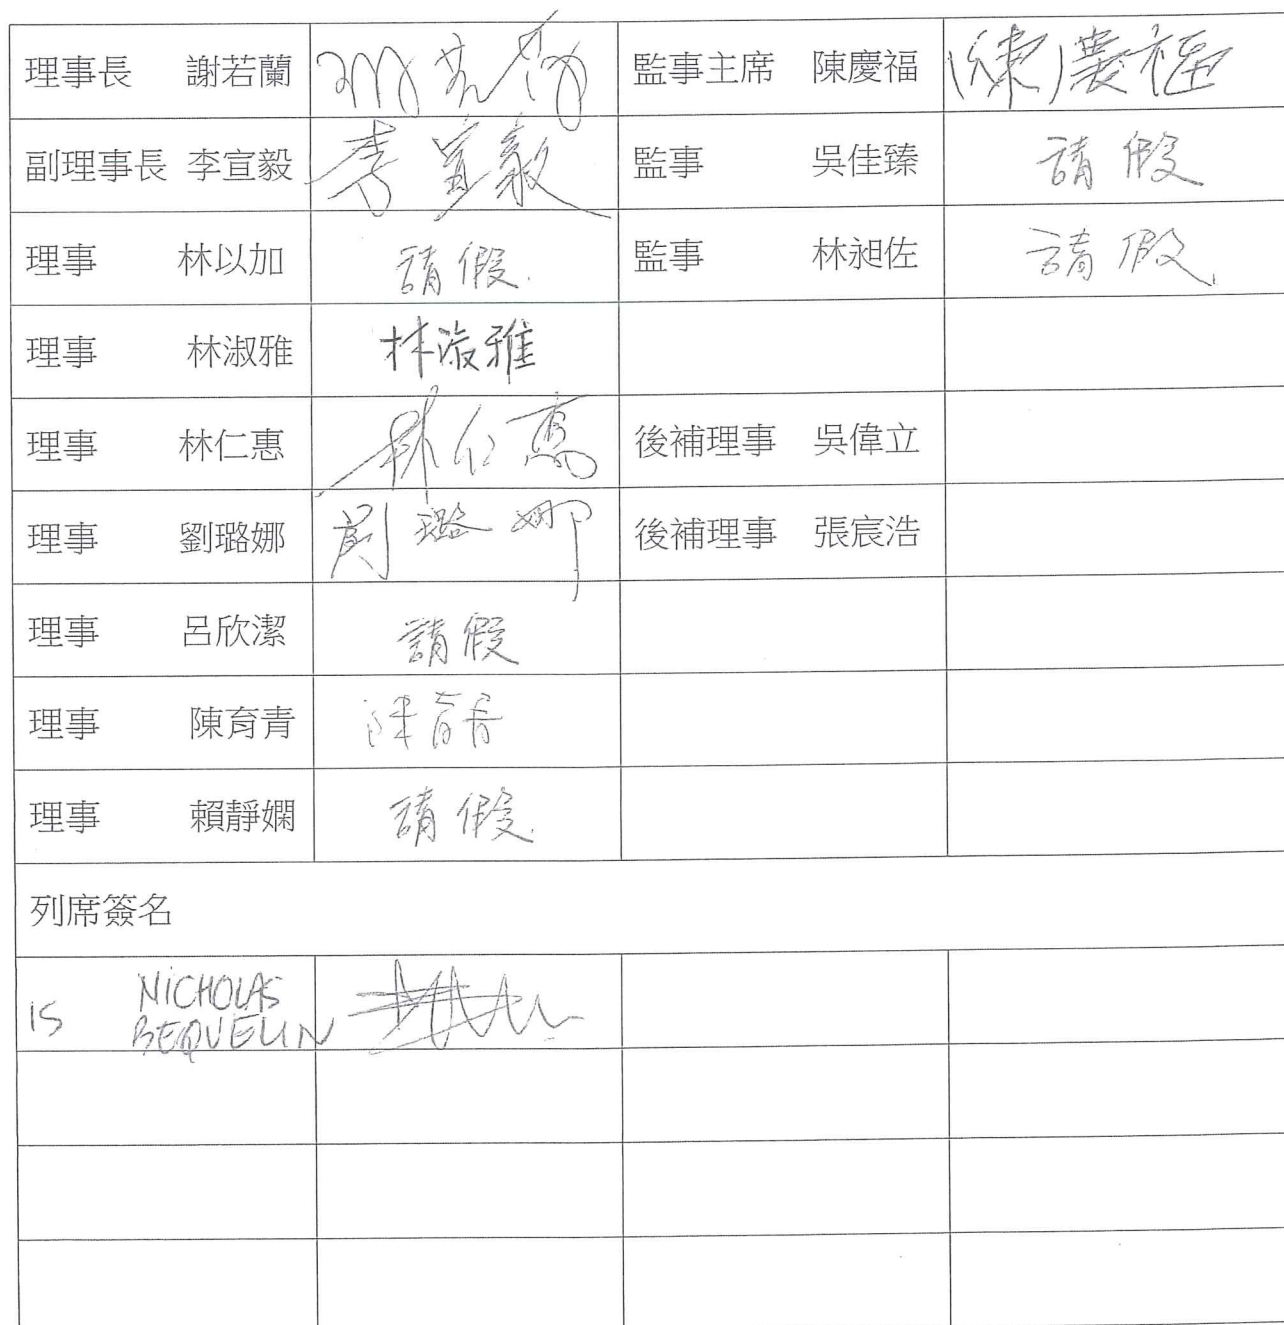 理事長 謝若蘭 謝若蘭 監事主席 陳慶福 陳慶福
副理事長 李宣毅 李宣毅 監事 吳佳臻 請假
理事 林以加 請假. 監事 林昶佐 請假.
理事 林淑雅 林淑雅
理事 林仁惠 林仁惠 後補理事 吳偉立
理事 劉璐娜 劉璐娜 後補理事 張宸浩
理事 呂欣潔 請假
理事 陳育青 陳育青
理事 賴靜嫻 請假.
列席簽名
IS NICHOLAS
BEQUELIN